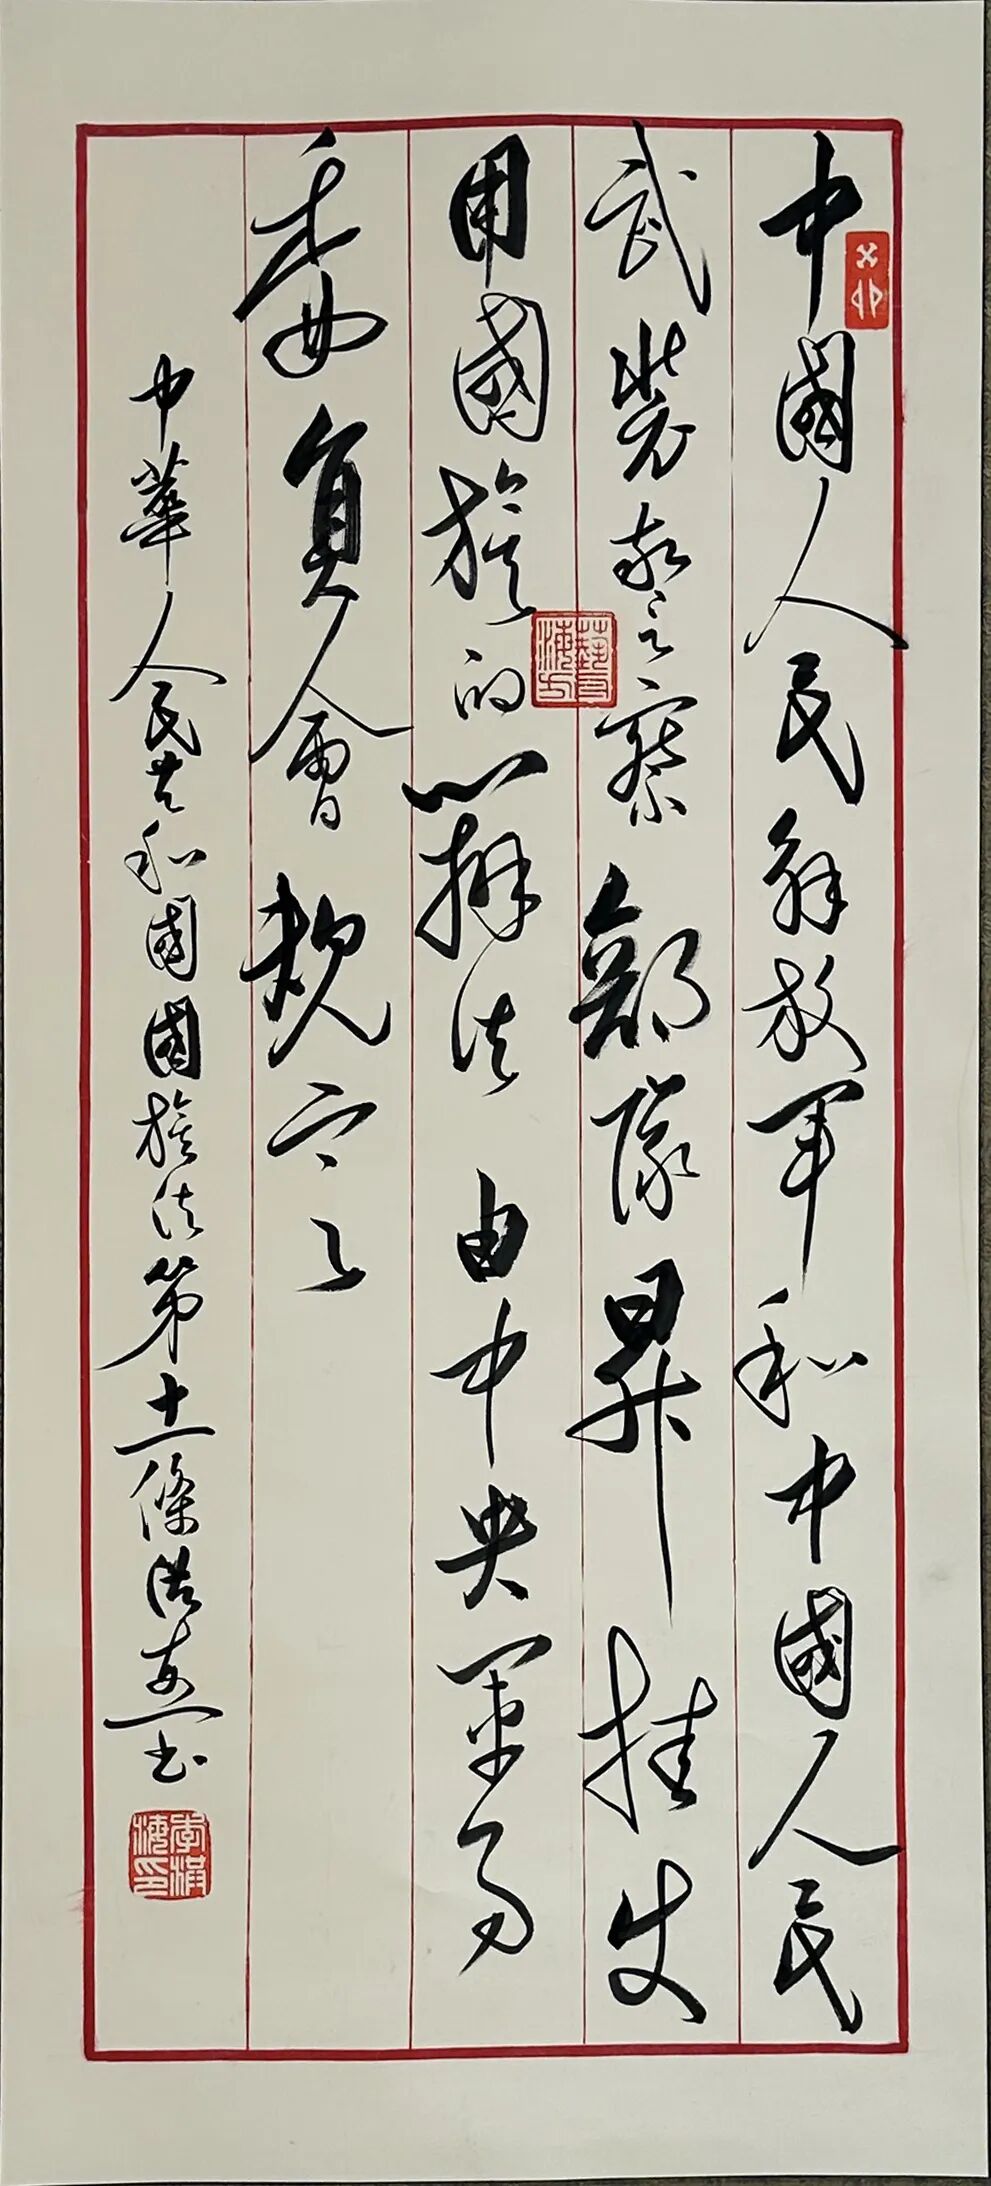 中國人民解放軍和中國人民
武裝警察部隊昇挂使
用國旗的辦法由中央軍事
委員會規定
中華人民共和國國旗法第十一條浩書